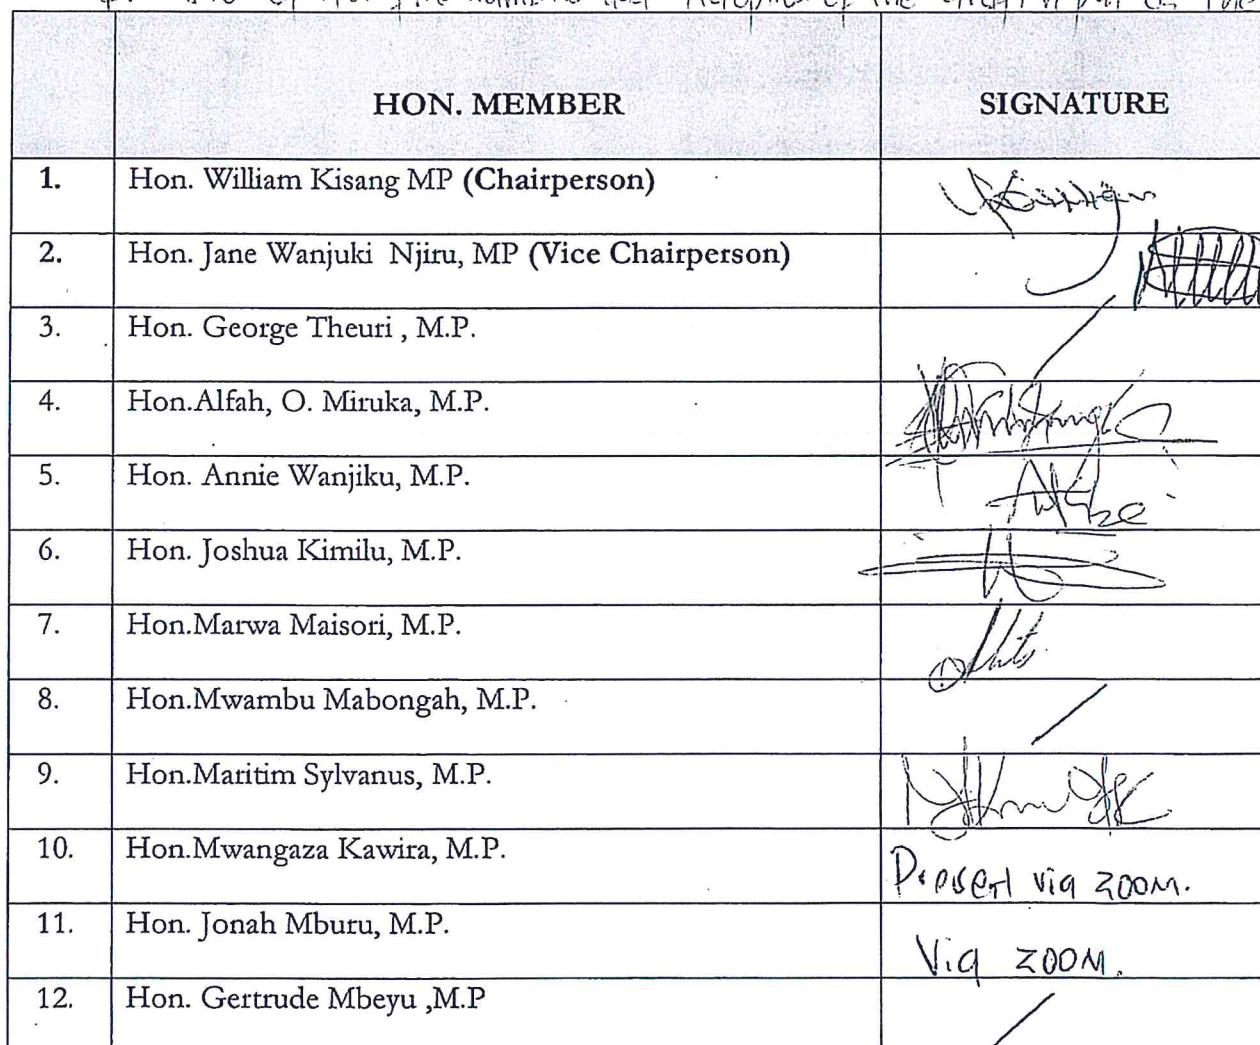 HON. MEMBER SIGNATURE
1. Hon. William Kisang MP (Chairperson)
2. Hon. Jane Wanjuki Njiru, MP (Vice Chairperson)
3. Hon. George Theuri , M.P.
4. Hon.Alfah, O. Miruka, M.P.
5. Hon. Annie Wanjiku, M.P.
6. Hon. Joshua Kimilu, M.P.
7. Hon.Marwa Maisori, M.P.
8. Hon.Mwambu Mabongah, M.P.
9. Hon.Maritim Sylvanus, M.P.
10. Hon.Mwangaza Kawira, M.P. Present via ZOOM.
11. Hon. Jonah Mburu, M.P. Via ZOOM.
12. Hon. Gertrude Mbeyu ,M.P